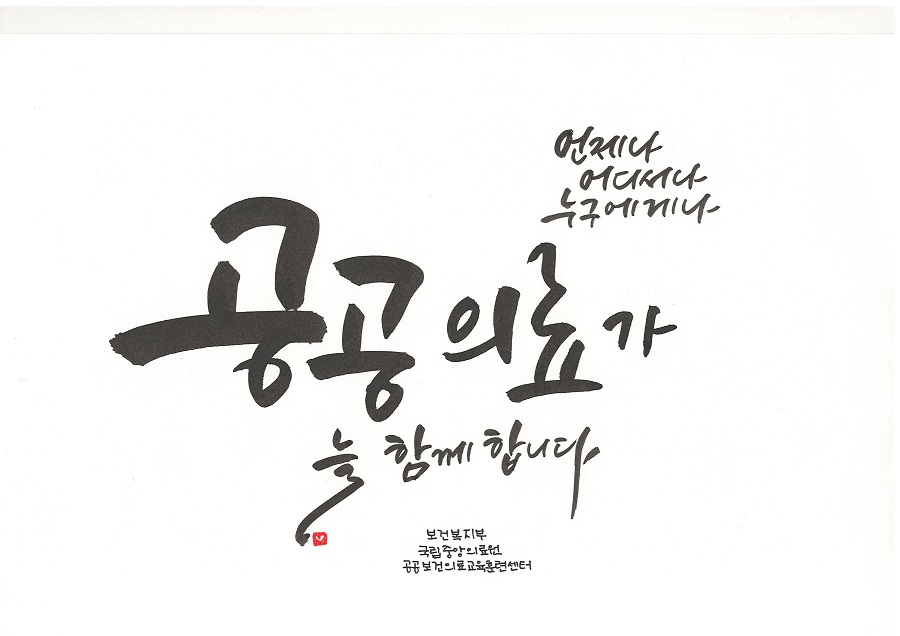 언제나
어디서나
누구에게나
공공의료가
늘 함께 합니다
보건복지부
국립중앙의료원
공공보건의료교육훈련센터